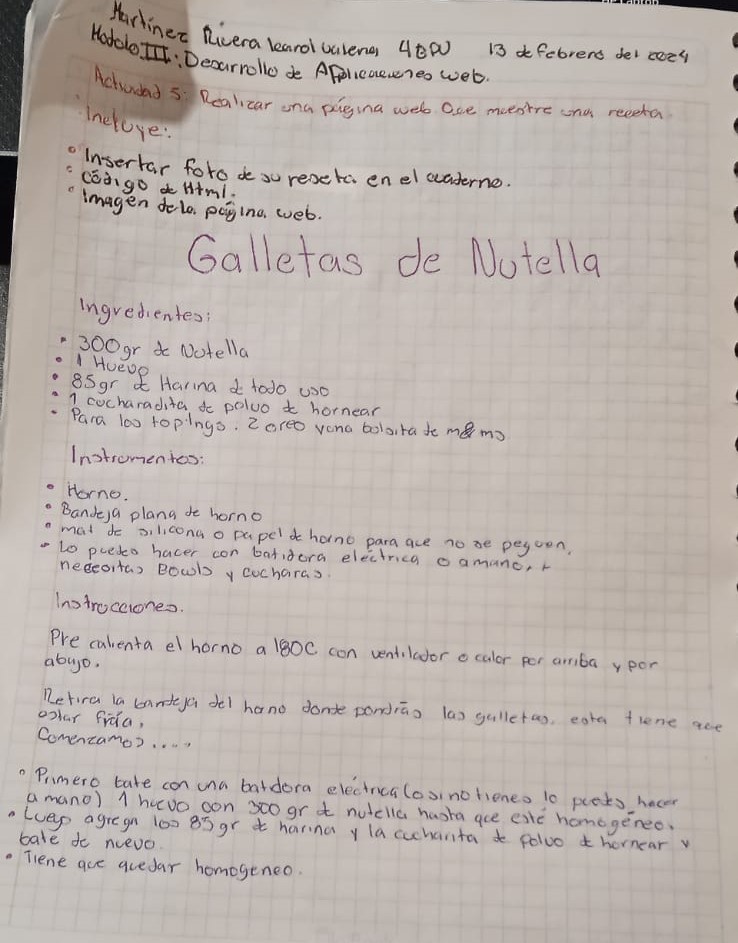 Martínez Rivera Karol Valeria 4BPV 13 de febrero del 2024
Modulo III: Desarrollo de Applicaciones web.
Actividad 5: Realizar una página web Que muestre una receta
Incluye:
• Insertar foto de su receta en el cuaderno.
• Código de Html.
• Imagen de la página web.
Galletas de Nutella
Ingredientes:
• 300gr de Nutella
• 1 Huevo
• 85gr de Harina de todo uso
• 1 cucharadita de polvo de hornear
• Para los topings. 2 oreo y una bolsita de m&ms
Instrumentos:
• Horno.
• Bandeja plana de horno
• mat de silicona o papel de horno para que no se peguen.
• Lo puedes hacer con batidora eléctrica o a mano,
necesitas Bowls y cucharas.
Instrucciones.
Pre calienta el horno a 180C con ventilador o calor por arriba y por
abajo.
Retira la bandeja del horno donde pondrás las galletas, esta tiene que
estar fría,
Comenzamos.....
• Primero bate con una batidora eléctrica (o si no tienes lo puedes hacer
a mano) 1 huevo con 300 gr de nutella hasta que esté homogéneo.
• Luego agrega los 85gr de harina y la cucharita de polvo de hornear y
bate de nuevo.
• Tiene que quedar homogeneo.